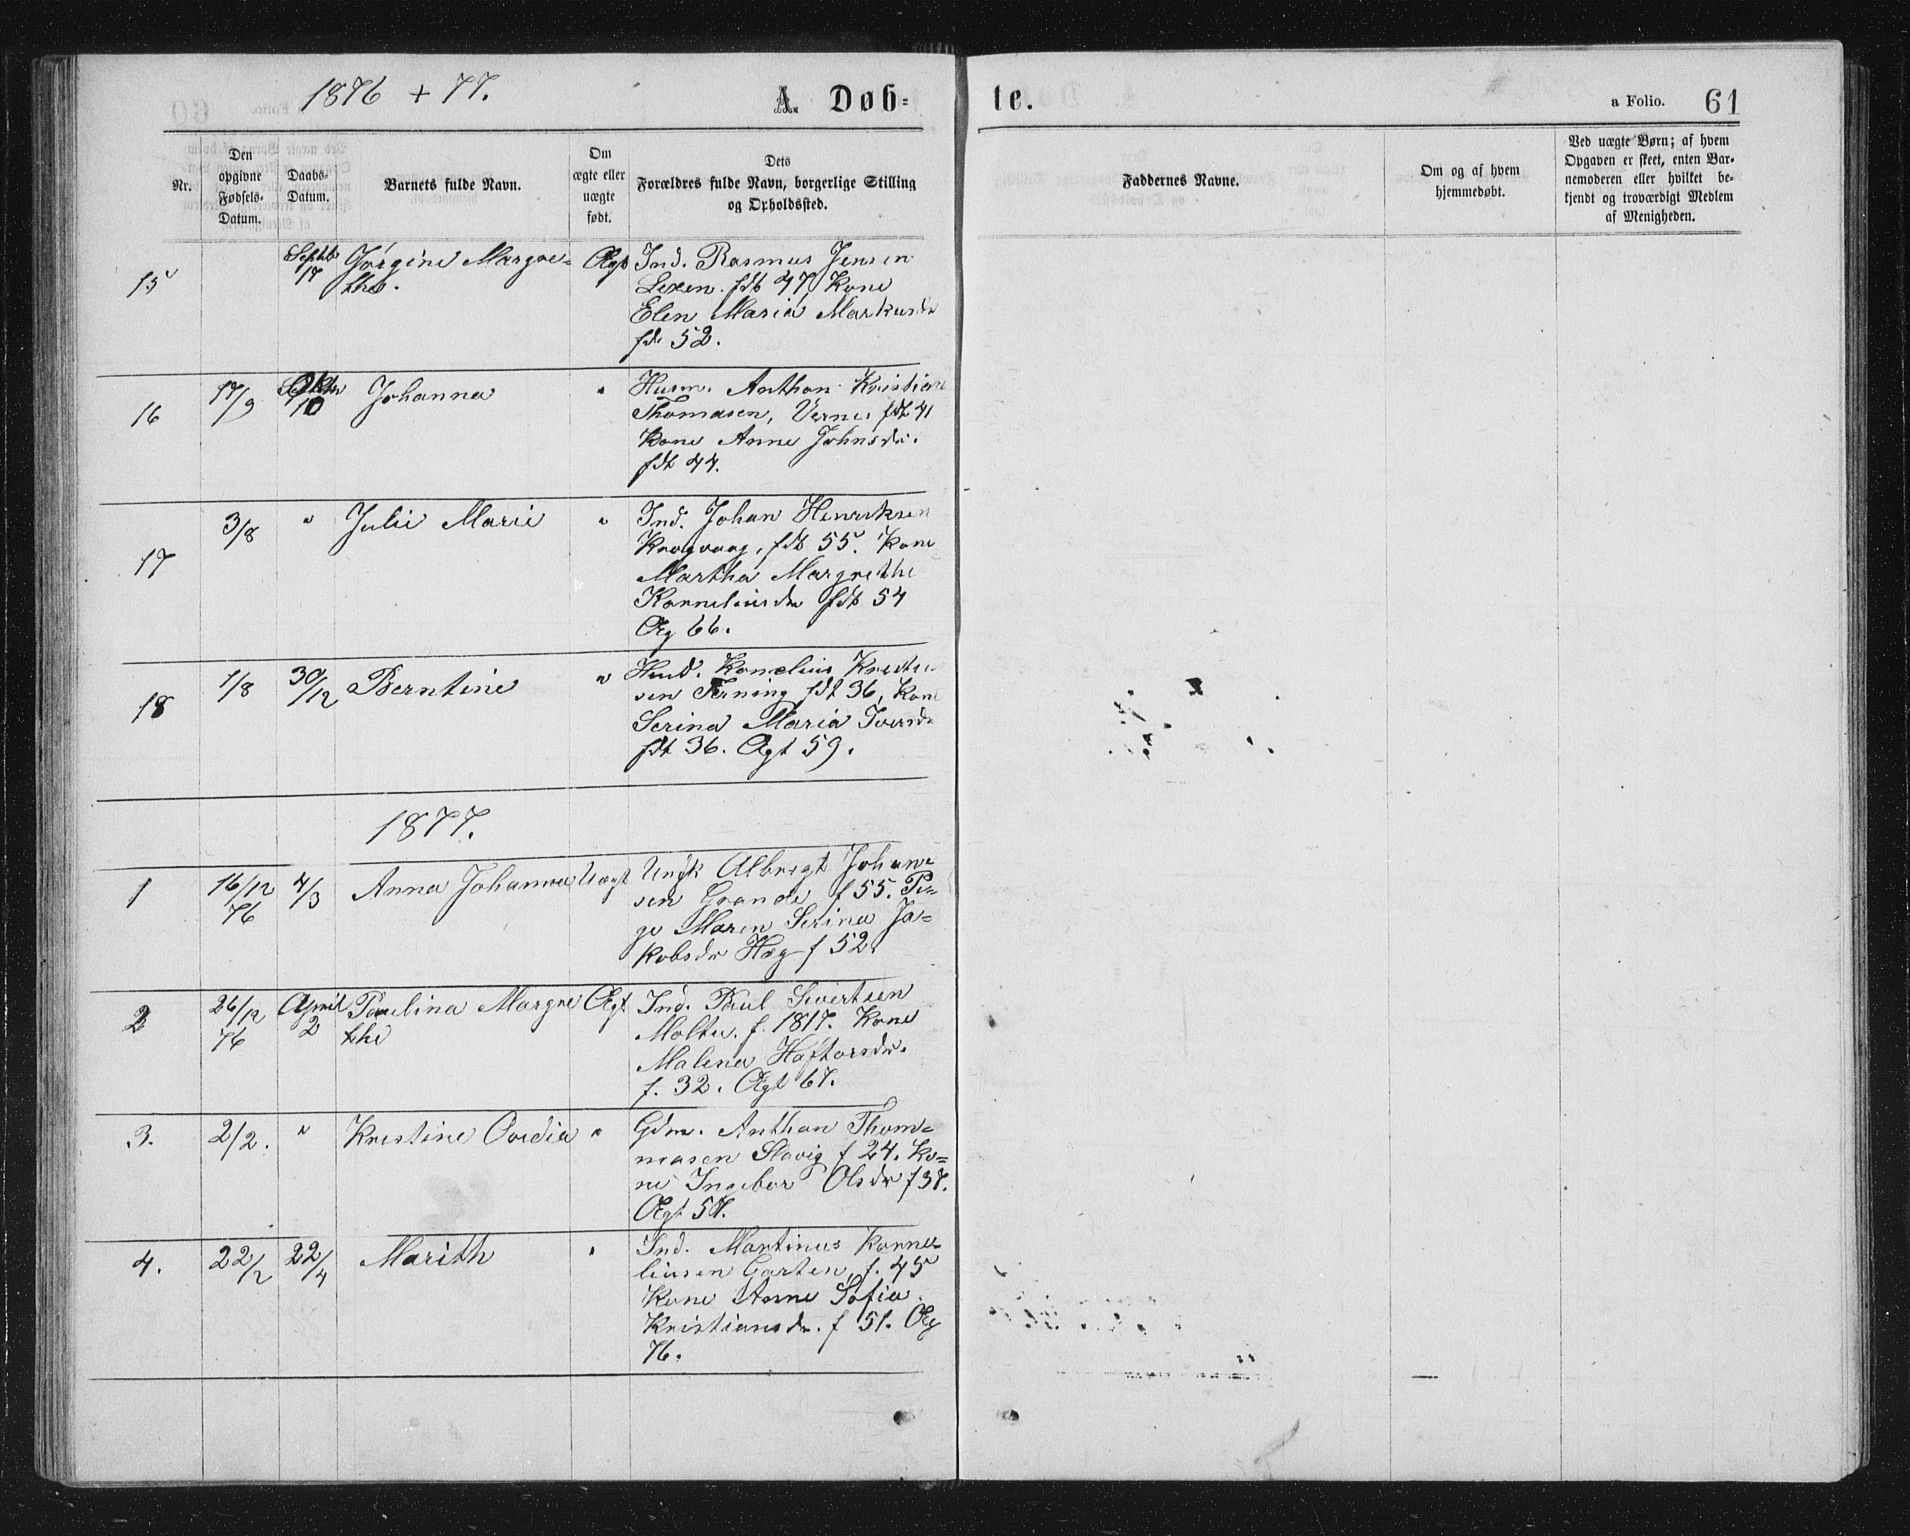 1876 + 77.
A. Døb-
te.
a Folio. 61
Nr.
Den opgivne Fødsels-Datum.
Daabs-Datum.
Barnets fulde Navn.
Om ægte eller uægte født.
Dets Forældres fulde Navn, borgerlige Stilling og Opholdssted.
Faddernes Navne.
Om og af hvem hjemmedøbt.
Ved uægte Børn; af hvem Opgaven er skeet, enten Barnemoderen eller hvilket bekjendt og troværdigt Medlem af Menigheden.
15 Septb 17 Jørgine Margre-
the.
Ægt
Ind. Rasmus Jensen
Lexen. fdt 47, Kone
Elen Maria Markusdr
fdt 52.
16 17/9 Oktbr 10 Johanna "
Husm. Anthon Kristian
Thomasen, Vernes fdt 41
Kone Anne Johnsdr.
fdt 44.
17 3/8 " Julie Marie "
Ind. Johan Henriksen
Krogvaag, fdt 55. Kone
Martha Margrethe
Korneliusdr fdt 54
Æg 66.
18 1/8 30/12 Berntine "
Kornelius Krist
sen Terning fdt 36, Kone
Serina Maria Iversdr
fdt 36. Ægt 59.
1877.
1 16/12 76 4/3 Anna Johanna Uægt
Ungk Albregt Johan-
sen Grande f 55. Pi-
ge Maren Serina Ja-
kobsdr Hæg f 52.
2 26/12 76 April 2 Paulina Margre
the
Ægt
Ind. Paul Sivertsen
Molte. f. 1817. Kone
Malena Haftorsdr.
f. 32. Ægt 67.
3. 2/2. " Kristine Ovedia "
Gdm. Anthon Thom-
masen Slavig f 24. Ko-
ne Ingebor Olsdr f 37.
Ægt 57.
4. 22/2 22/4 Marith "
Ind. Martinus Korne-
liusen Garten, f. 45
Kone Anne Sofia
Kristiansdr. f 51. Æg
76.